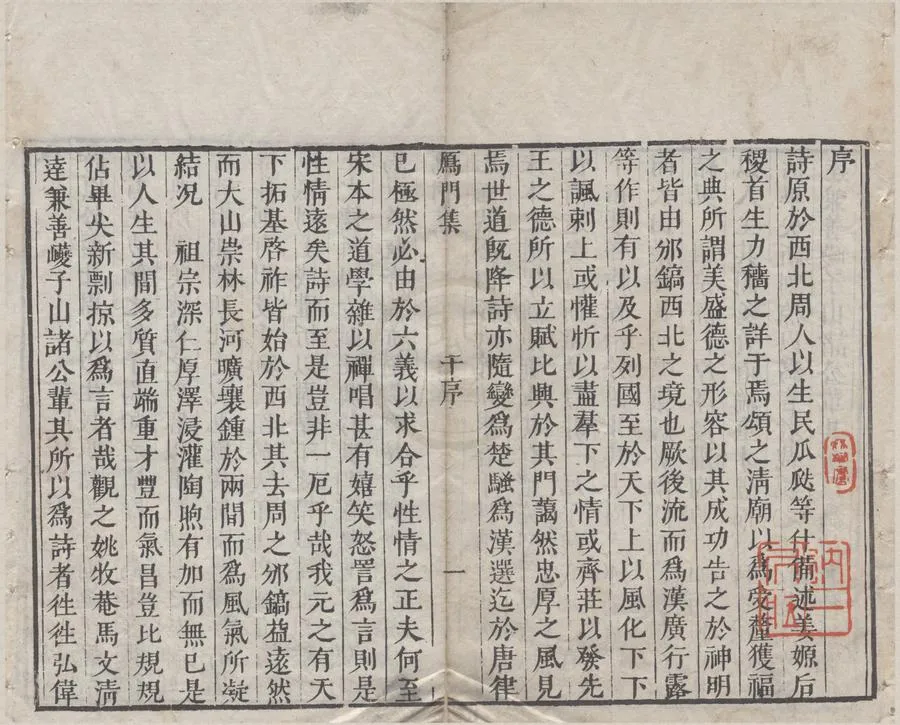 序
詩原於西北周人以生民瓜瓞等什備述姜嫄后
稷首生力穡之詳于焉頌之淸廟以爲受釐獲福
之典所謂美盛德之形容以其成功告之於神明
者皆由邠鎬西北之境也厥後流而爲漢廣行露
等作則有以及乎列國至於天下上以風化下下
以諷刺上或懽忻以盡羣下之情或齊莊以發先
王之德所以立賦比興於其門藹然忠厚之風見
焉世道旣降詩亦隨變爲楚騷爲漢選迄於唐律
鴈門集
干序
一
已極然必由於六義以求合乎性情之正夫何至
宋本之道學雜以禪唱甚有嬉笑怒罟爲言則是
性情遠矣詩而至是豈非一厄乎哉我元之有天
下拓基啓祚皆始於西北其去周之邠鎬益遠然
而大山崇林長河曠壤鍾於兩間而爲風氣所凝
結况　祖宗深仁厚澤浸灌陶煦有加而無已是
以人生其間多質直端重才豐而氣昌豈比規規
佔畢尖新剽掠以爲言者哉觀之姚牧菴馬文淸
達兼善巙子山諸公輩其所以爲詩者徃徃弘偉